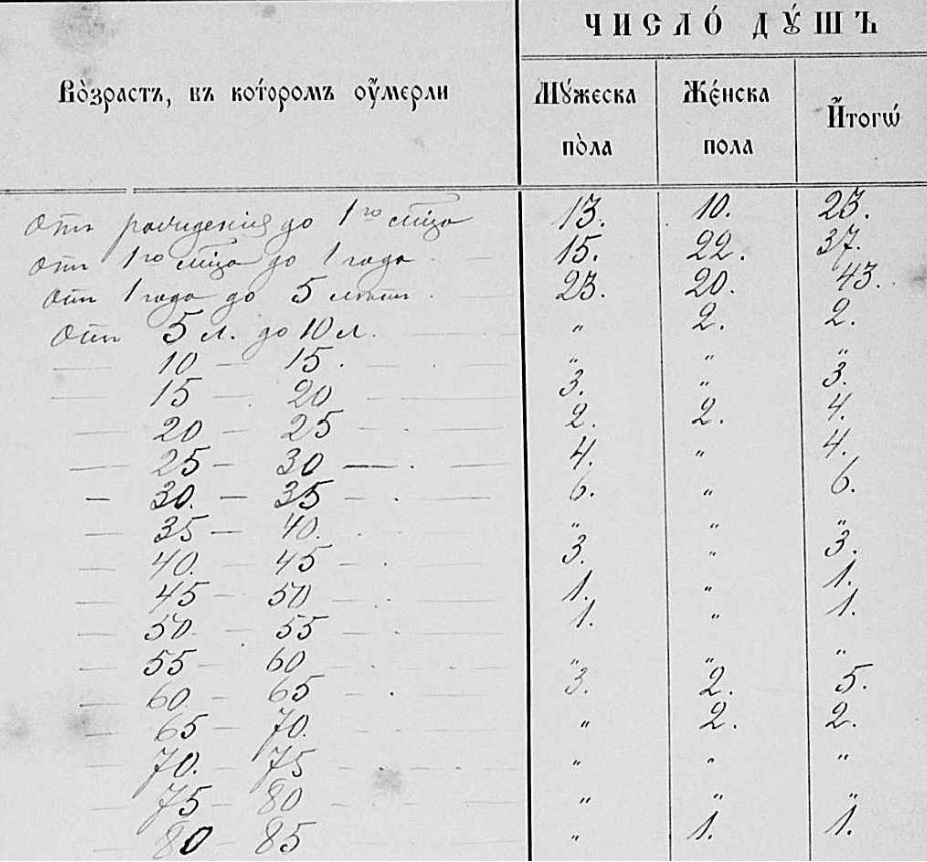 ЧИСЛО́ ДꙊ́ШЪ
Во́зрастъ, въ кото́ромъ оу҆мерли
Мꙋ́жеска по̀ла
Же́нска пола
И҆тогѡ́
Отъ рожденія до 1го мца 13. 10. 23.
Отъ 1го мца до 1 года 15. 22. 37.
Отъ 1 года до 5 летъ 23. 20. 43.
Отъ 5 л. до 10 л. „ 2. 2.
— 10 — 15. „ „ „
— 15 — 20 3. „ 3.
— 20 — 25 2. 2. 4.
— 25 — 30 — 4. „ 4.
— 30. — 35 — 6. „ 6.
— 35 — 40. „ „ „
— 40. — 45 — 3. „ 3.
— 45 — 50 — 1. „ 1.
— 50. — 55 — 1. „ 1.
— 55 — 60 „ „ „
— 60 — 65 — 3. 2. 5.
— 65 — 70. „ 2. 2.
— 70. — 75 „ „ „
— 75 — 80 „ „ „
— 80 — 85 „ 1. 1.